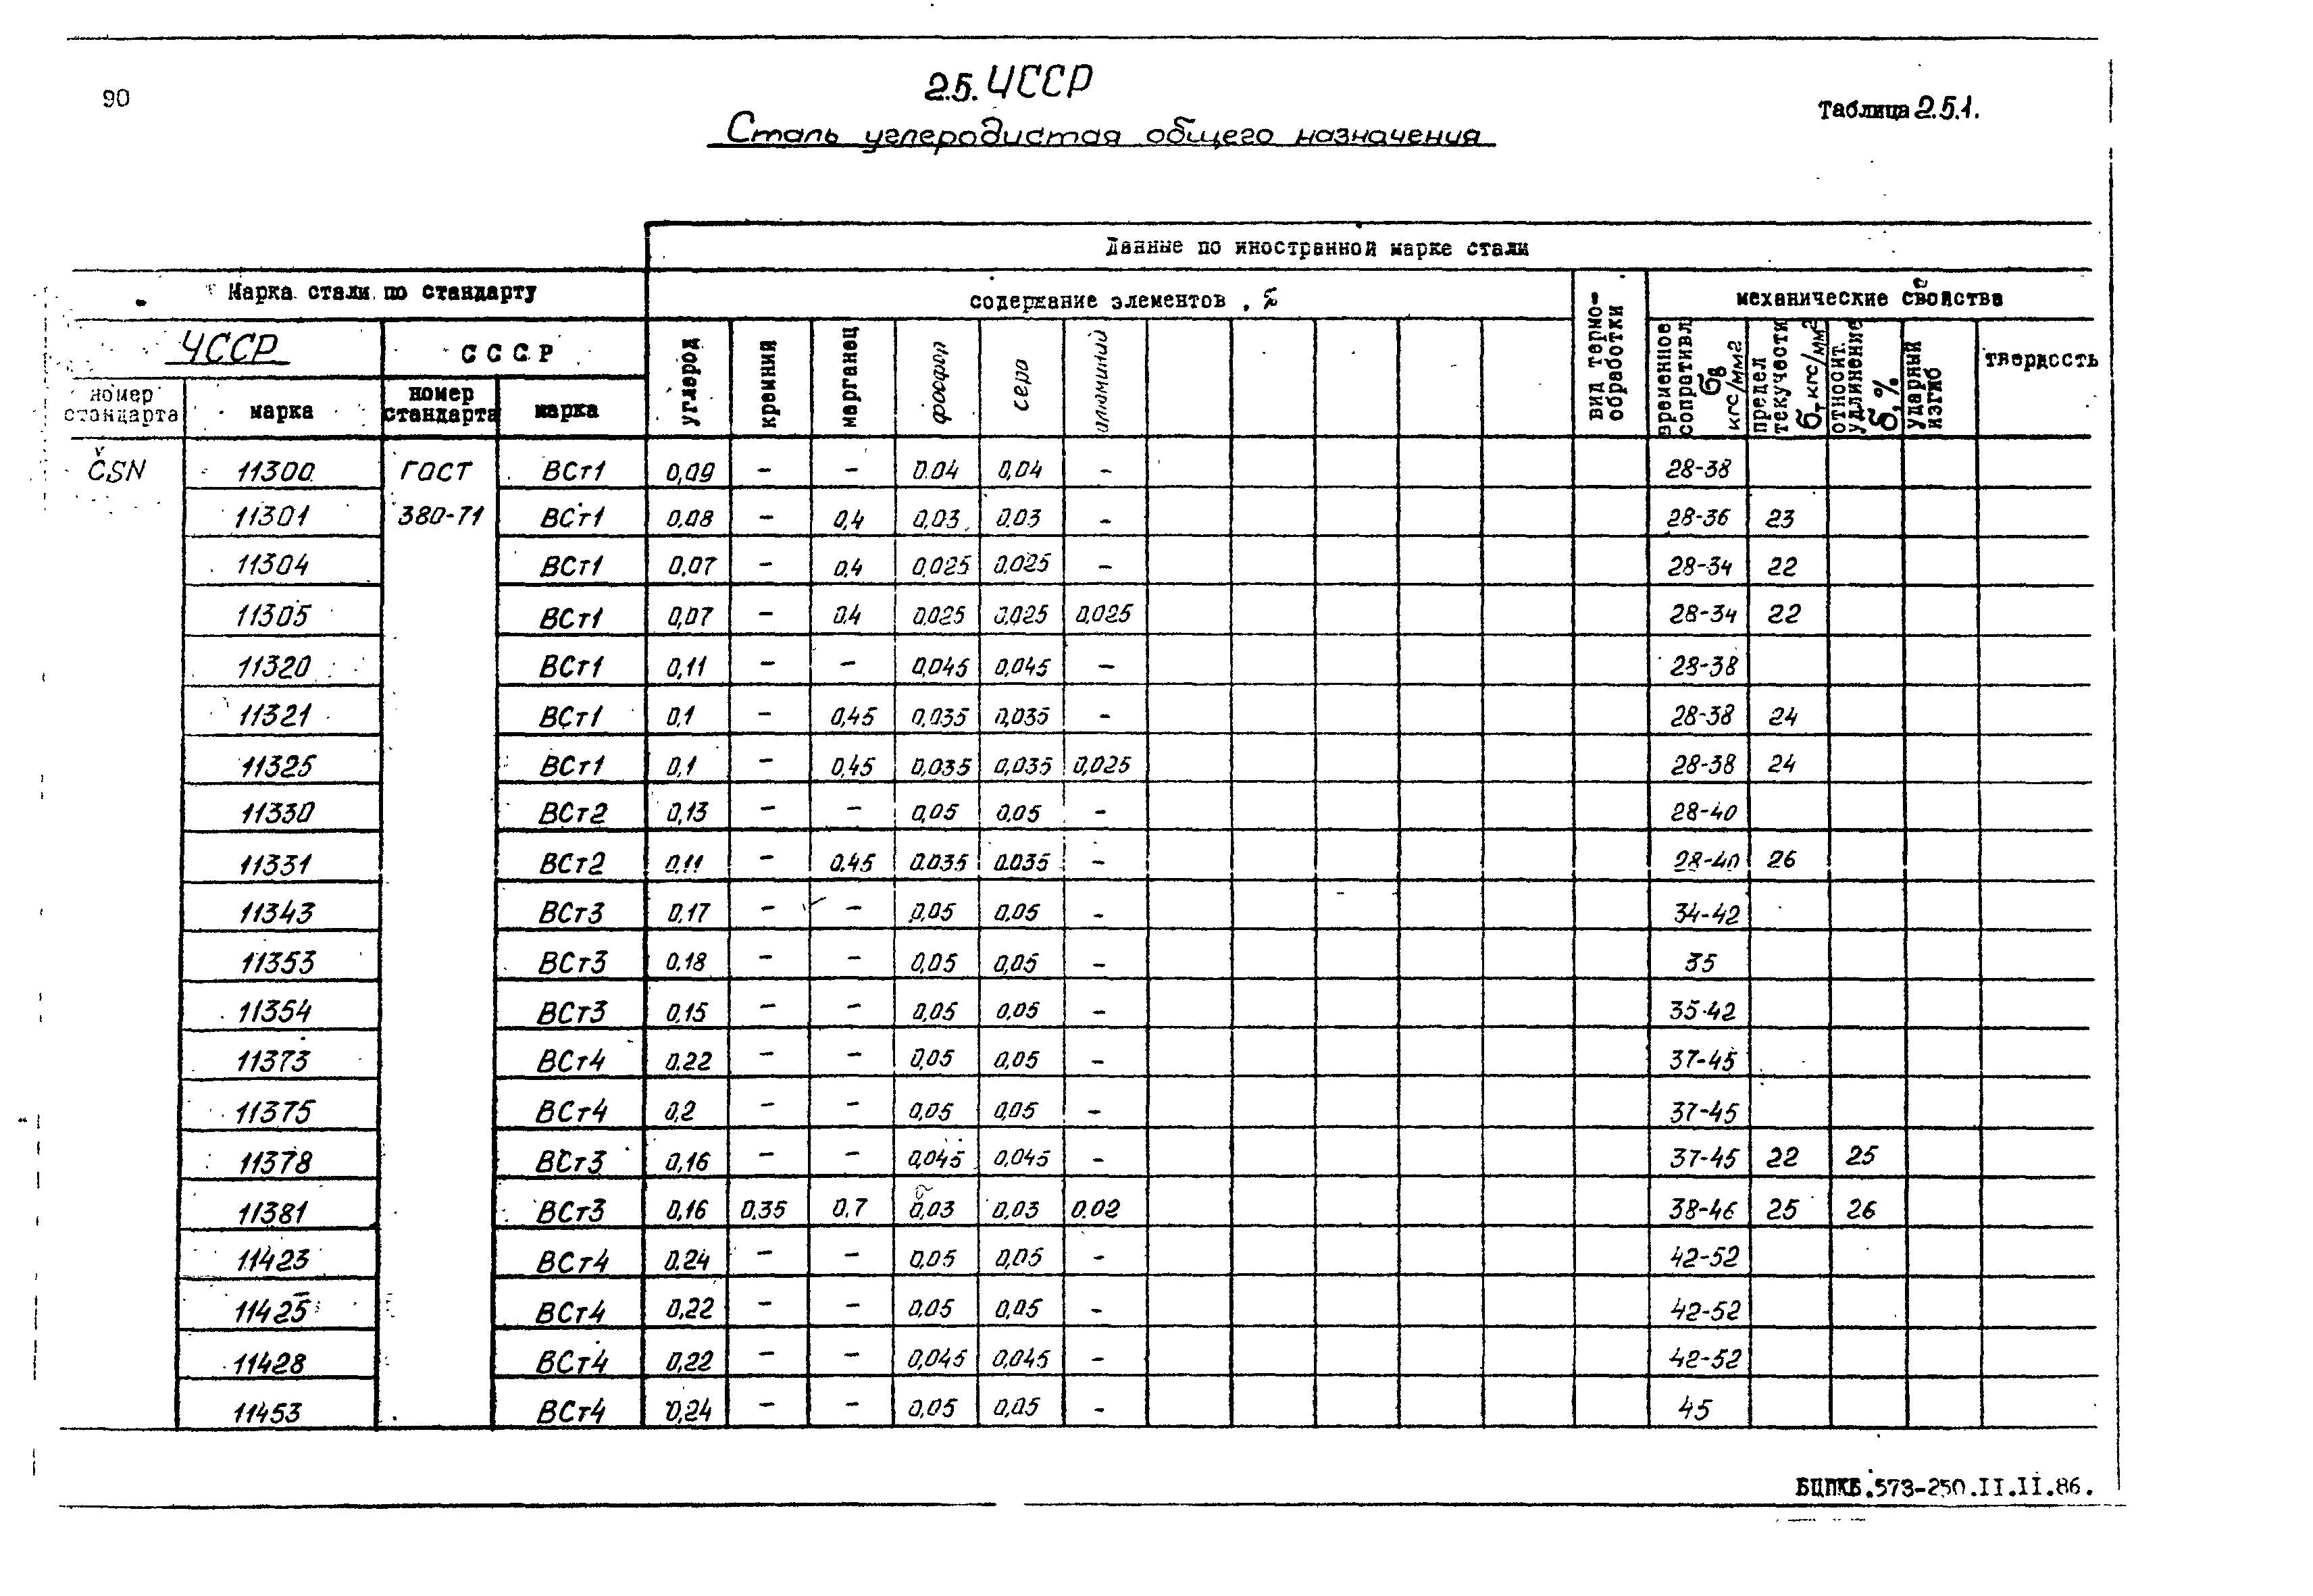 90
2.5. ЧССР
Таблица 2.5.1.
Сталь углеродистая общего назначения
Данные по иностранной марке стали
Марка стали по стандарту
содержание элементов, %
вид термо-обработки
механические свойства
ЧССР
СССР
углерод
кремний
марганец
фосфор
сера
алюминий
временное сопротивл. σв кгс/мм2
предел текучести σт кгс/мм2
относит. удлинение δ, %
ударный изгиб
твердость
номер стандарта
марка
номер стандарта
марка
ČSN 11300 ГОСТ ВСт1 0,09 - - 0.04 0,04 - 28-38
11301 380-71 ВСт1 0,08 - 0,4 0,03 0,03 - 28-36 23
11304 ВСт1 0,07 - 0,4 0,025 0.025 - 28-34 22
11305 ВСт1 0,07 - 0.4 0,025 0,025 0,025 28-34 22
11320 ВСт1 0,11 - - 0,045 0,045 - 28-38
11321 ВСт1 0,1 - 0,45 0,035 0,035 - 28-38 24
11325 ВСт1 0,1 - 0,45 0,035 0,035 0,025 28-38 24
11330 ВСт2 0,13 - - 0,05 0,05 - 28-40
11331 ВСт2 0.11 - 0.45 0.035 0.035 - 28-40 26
11343 ВСт3 0,17 - - 0,05 0,05 - 34-42
11353 ВСт3 0.18 - - 0,05 0,05 - 35
11354 ВСт3 0,15 - - 0,05 0,05 - 35-42
11373 ВСт4 0.22 - - 0,05 0,05 - 37-45
11375 ВСт4 0,2 - - 0,05 0,05 - 37-45
11378 ВСт3 0,16 - - 0,045 0,045 - 37-45 22 25
11381 ВСт3 0,16 0.35 0.7 0,03 0,03 0.02 38-46 25 26
11423 ВСт4 0.24 - - 0,05 0,05 - 42-52
11425 ВСт4 0,22 - - 0,05 0,05 - 42-52
11428 ВСт4 0,22 - - 0,045 0,045 - 42-52
11453 ВСт4 0,24 - - 0,05 0,05 - 45
БЦПКБ.573-250.II.II.86.